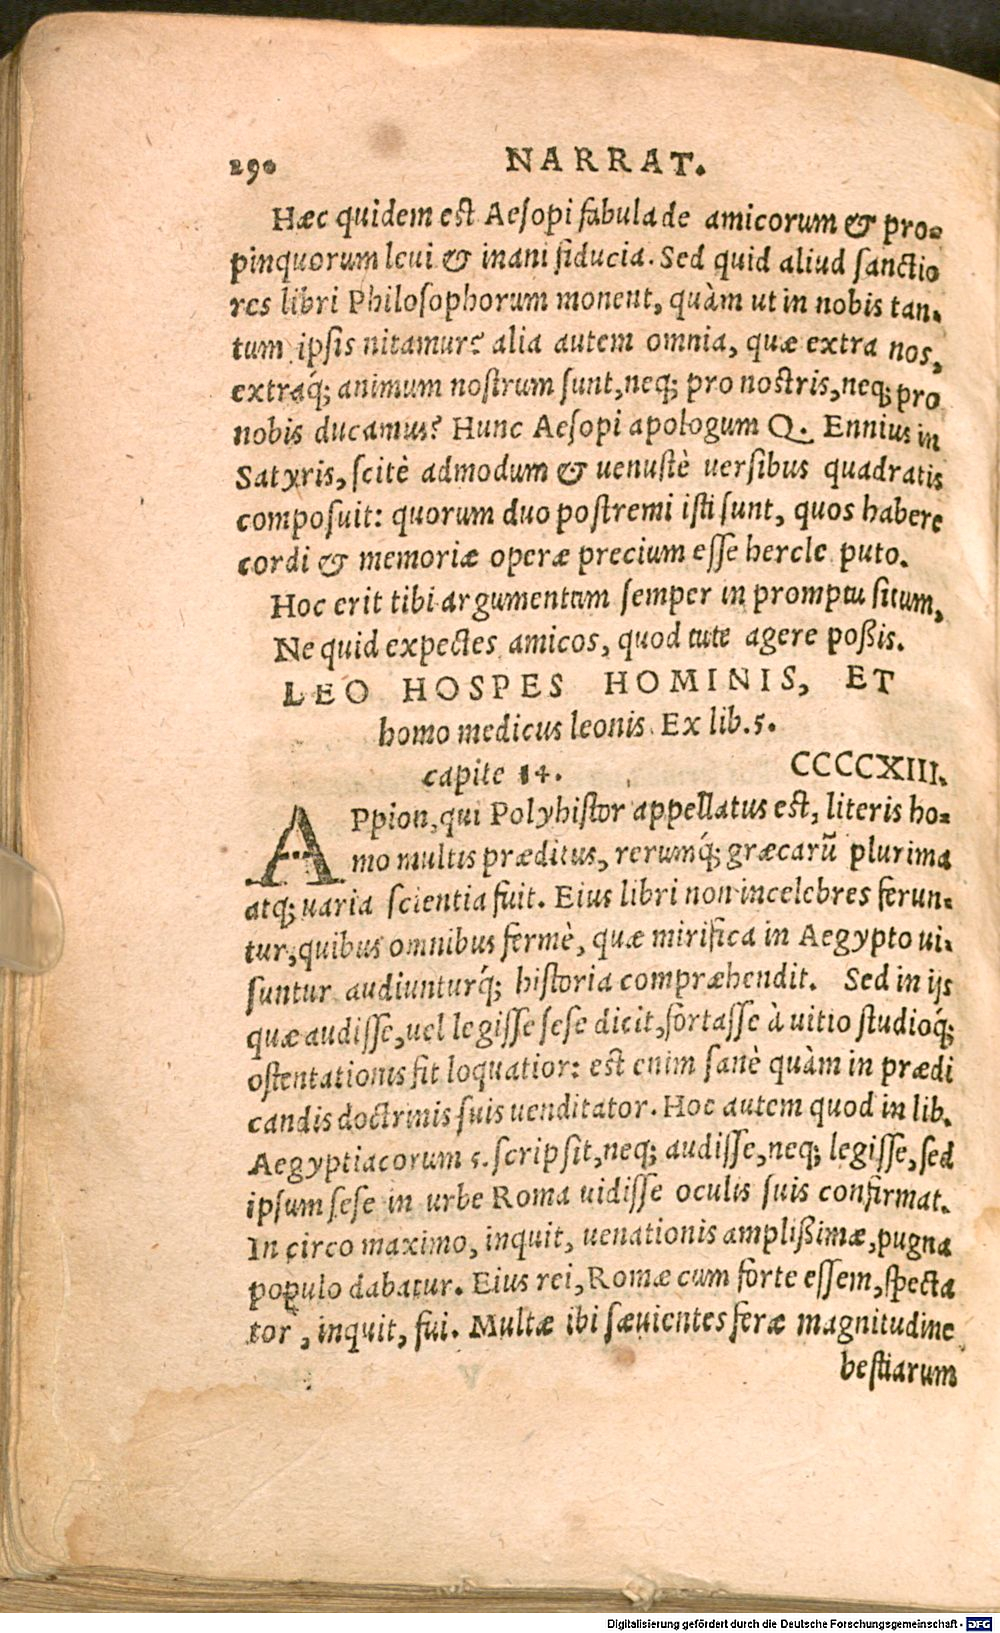 290 NARRAT.
Hæc quidem est Aesopi fabula de amicorum & pro-
pinquorum leui & inani fiducia. Sed quid aliud sanctio
res libri Philosophorum monent, quàm ut in nobis tan-
tum ipsis nitamur? alia autem omnia, quæ extra nos,
extraq́; animum nostrum sunt, neq; pro nostris, neq; pro
nobis ducamus? Hunc Aesopi apologum Q. Ennius in
Satyris, scitè admodum & uenustè uersibus quadratis
composuit: quorum duo postremi isti sunt, quos habere
cordi & memoriæ operæ precium esse hercle puto.
Hoc erit tibi argumentum semper in promptu situm,
Ne quid expectes amicos, quod tute agere poßis.
LEO HOSPES HOMINIS, ET
homo medicus leonis. Ex lib. 5.
capite 14. CCCCXIII.
APpion, qui Polyhistor appellatus est, literis ho-
mo multis præditus, rerumq́; græcarũ plurima
atq; uaria scientia fuit. Eius libri non incelebres ferun-
tur, quibus omnibus fermè, quæ mirifica in Aegypto ui-
suntur audiunturq́; historia compræhendit. Sed in ijs
quæ audisse, uel legisse sese dicit, fortasse à uitio studioq́;
ostentationis fit loquatior: est enim sanè quàm in prædi
candis doctrinis suis uenditator. Hoc autem quod in lib.
Aegyptiacorum 5. scripsit, neq; audisse, neq; legisse, sed
ipsum sese in urbe Roma uidisse oculis suis confirmat.
In circo maximo, inquit, uenationis amplißimæ, pugna
populo dabatur. Eius rei, Romæ cum forte essem, specta
tor, inquit, fui. Multæ ibi sæuientes feræ magnitudine
bestiarum
Digitalisierung gefördert durch die Deutsche Forschungsgemeinschaft - DFG